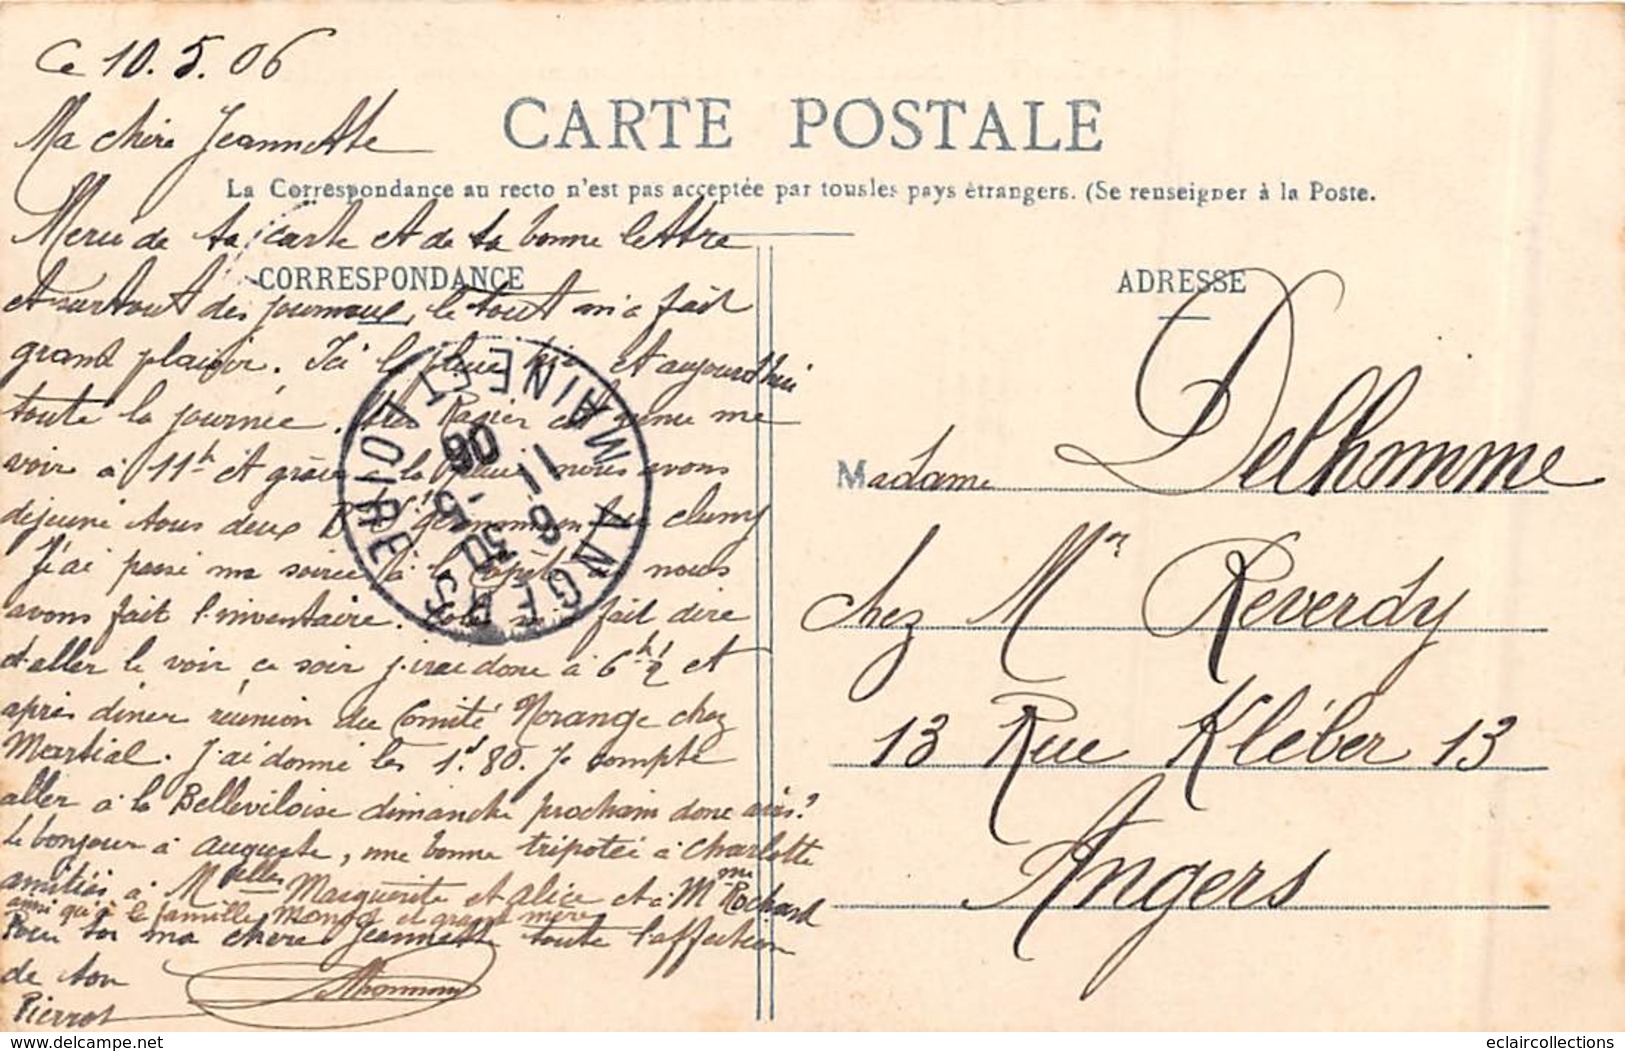 Ce 10.5.06
CARTE POSTALE
Ma chère Jeannette
La Correspondance au recto n'est pas acceptée par tous les pays étrangers. (Se renseigner à la Poste.
Merci de ta carte et de ta bonne lettre
CORRESPONDANCE
et surtout des journaux, le tout m'a fait
grand plaisir. Ici la pluie hier et aujourd'hui
toute la journée. Ragier est venu me
voir à 11h et grâce à la pluie nous avons
déjeuné tous deux Bd St Germain Cluny
J'ai passé ma soirée à la nous
avons fait l'inventaire. m'a fait dire
d'aller le voir ce soir j'irai donc à 6h ½ et
après diner réunion du Comité Morange chez
Martial. J'ai donné les 1f.80. Je compte
aller à la Belleviloise dimanche prochain donc avis?
Le bonjour à Auguste, une bonne tripotée à Charlotte
amitiés à Melles Marguerite et Alice et à Mme Rochard
ainsi qu'à la famille Monod et grand mère
Pour toi ma chère Jeannette toute l'affection
de ton
Pierrot
ANGERS
MAINE ET LOIRE
6 30
11 - 5
06
ADRESSE
Madame Delhomme
chez Mr Reverdy
13 Rue Kléber 13
Angers
eclaircollections
www.delcampe.net